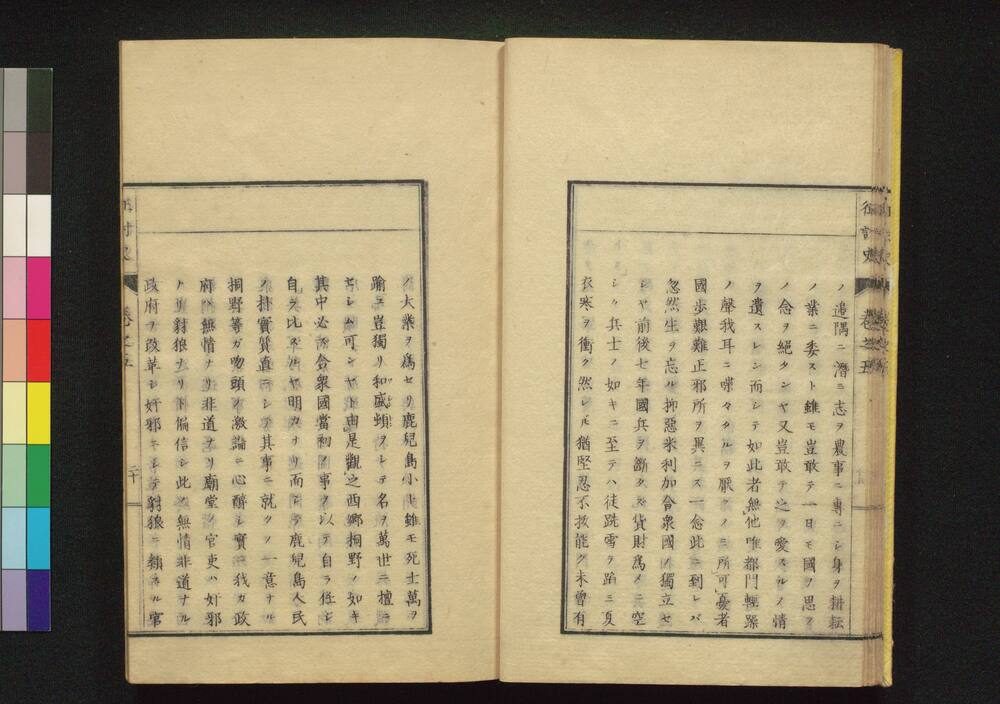 ノ邉隅ニ潛ミ志ヲ農事ニ專ニシ身ヲ耕耘
ノ業ニ委スト雖モ豈敢テ一日モ國ヲ思フ
ノ念ヲ絕タンヤ又豈敢テ之ヲ愛スルノ情
ヲ遺スレン而シテ如此者無他唯都門輕躁
ノ聲我耳ニ喋々タルヲ厭フノミ所可憂者
國歩艱難正邪所ヲ異ニス一念此ニ到レバ
忽然生ヲ忘ル抑惡米利加合衆國ノ獨立セ
シヤ前後七年國兵ヲ斷タズ貨財爲メニ空
シク兵士ノ如キニ至テハ徒跣雪ヲ蹈ミ夏
衣寒ヲ衝ク然レ𪜈猶堅忍不拔能ク未曾有
ノ大業ヲ爲セリ鹿兒島小ト雖モ死士萬ヲ
踰ユ豈獨リ和盛頓ヲシテ名ヲ萬世ニ擅ニ
セシム可ンヤト由是觀之西鄕桐野ノ如キ
其中必ズ合衆國當初ノ事ヲ以テ自ラ任シ
自ラ比スルヤ明カナリ而シテ鹿兒島人民
ノ朴實質直ニシテ其事ニ就クノ一意ナル
桐野等ガ吻頭ノ激論ニ心醉シ實ニ我カ政
府ハ無情ナリ非道ナリ廟堂ノ官吏ハ奸邪
ナリ豺狼ナリト偏信シ此ノ無情非道ナル
政府ヲ改革シ奸邪キ豺狼ニ類スル官
卷之五
二十